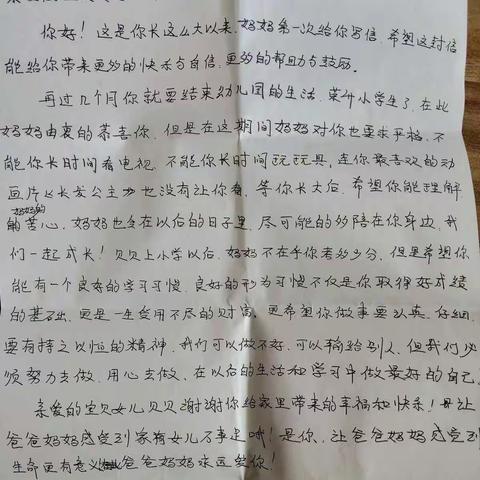 你好！这是你长这么大以来，妈妈第一次给你写信，希望这封信
能给你带来更多的快乐与自信，更多的帮助与鼓励。
再过几个月你就要结束幼儿园的生活，菜升小学生了，在此
妈妈由衷的恭喜你，但是在这期间妈妈对你也要求严格，不
能你长时间看电视，不能你长时间玩玩具，连你最喜欢的动
画片《长发公主》也没有让你看，等你长大后，希望你能理解
妈妈的
的苦心，妈妈也会在以后的日子里，尽可能的多陪在你身边，我
们一起成长！贝贝上小学以后，妈妈不在乎你考多少分，但是希望你
能有一个良好的学习习惯，良好的行为习惯不仅是你取得好成绩
的基础，更是一生受用不尽的财富，更希望你做事要认真、仔细，
要有持之以恒的精神，我们可以做不好，可以输给别人，但我们必
须努力去做，用心去做，在以后的生活和学习中做最好的自己。
亲爱的宝贝女儿贝贝谢谢你给家里带来的幸福和快乐！让
爸爸妈妈感受到家有女儿万事足哦！是你，让爸爸妈妈感受到
生命更有意义 爸爸妈妈永远爱你！